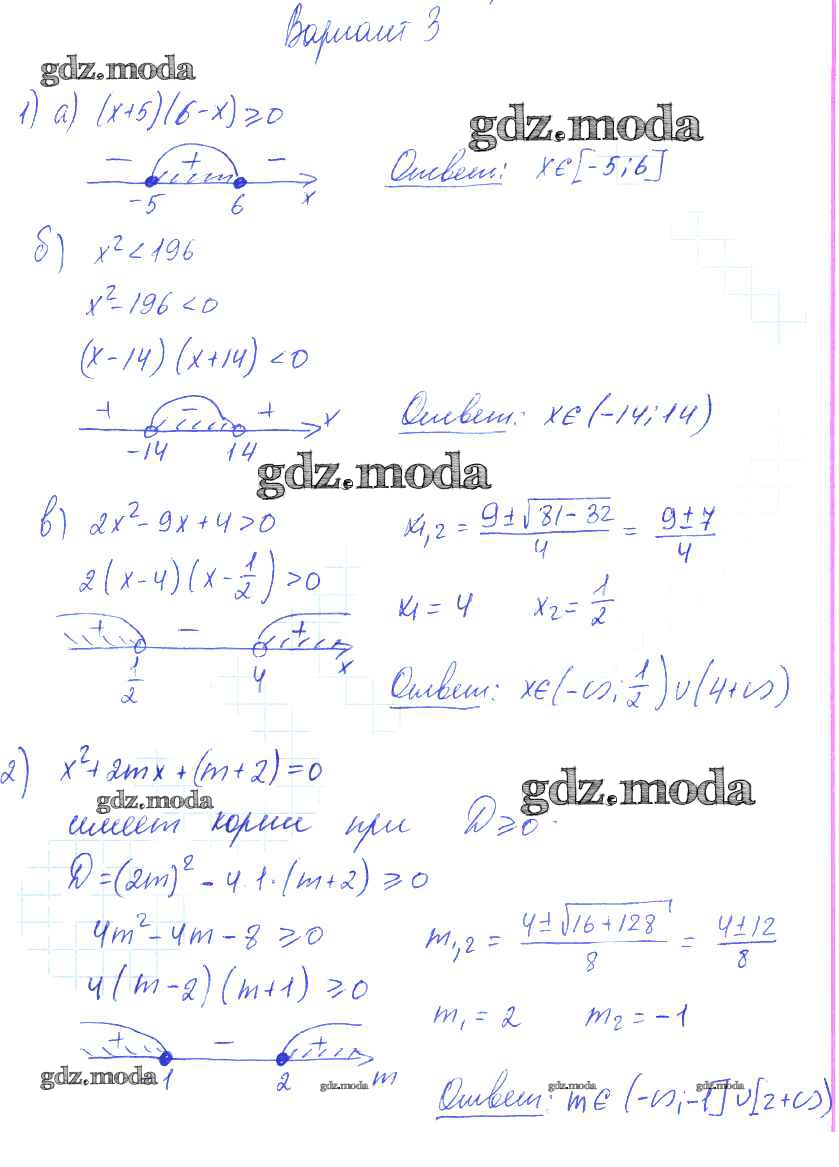 Вариант 3
gdz.moda
1) а) (x+5)(6-x) ≥ 0
gdz.moda
− + −
-5 6 x
Ответ: x∈[-5;6]
б) x² < 196
x² - 196 < 0
(x-14)(x+14) < 0
+ − + x
-14 14
Ответ: x∈(-14;14)
gdz.moda
в) 2x² - 9x + 4 > 0
x₁,₂ = (9±√(81-32))/4 = (9±7)/4
2(x-4)(x-1/2) > 0
x₁ = 4 x₂ = 1/2
+ − +
1/2 4 x
Ответ: x∈(-∞;1/2)∪(4+∞)
2) x² + 2mx + (m+2) = 0
gdz.moda
gdz.moda
имеет корни при D ≥ 0
D = (2m)² - 4·1·(m+2) ≥ 0
4m² - 4m - 8 ≥ 0
m₁,₂ = (4±√(16+128))/8 = (4±12)/8
4(m-2)(m+1) ≥ 0
m₁ = 2 m₂ = -1
+ − +
1 2 m
gdz.moda
gdz.moda
gdz.moda
gdz.moda
Ответ: m∈(-∞;-1]∪[2+∞)